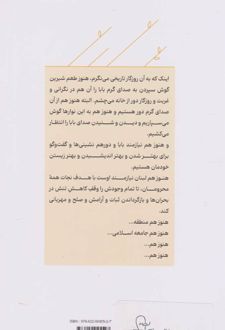 اینک که به آن روزگار تاریخی می‌نگرم، هنوز طعم شیرین
گوش سپردن به صدای گرم بابا را آن هم در نگرانی و
غربت و روزگار دور از خانه می‌چشم. البته هنوز هم از آن
صدای گرم دور هستیم و هنوز هم به این نوارها گوش
می‌سپاریم و دیدن و شنیدن صدای بابا را انتظار
می‌کشیم.
و هنوز هم نیازمند بابا و دورهم نشینی‌ها و گفت‌وگو
برای بهتر شدن و بهتر اندیشیدن و بهتر زیستن
خودمان هستیم.
هنوز هم لبنان نیازمند اوست با هدف نجات همهٔ
محرومان، تا تمام وجودش را وقف کاهش تنش در
بحران‌ها و بازگرداندن ثبات و آرامش و صلح و مهربانی
کند.
هنوز هم منطقه...
هنوز هم جامعه اسلامی...
هنوز هم...
هنوز هم...